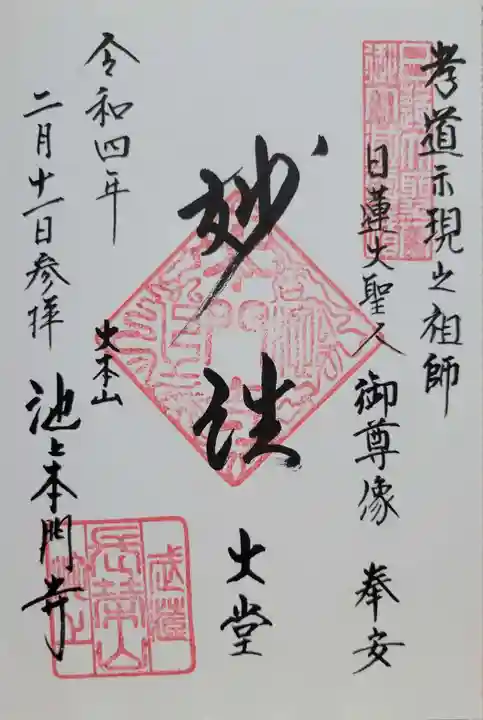 孝道示現之祖師
日蓮大聖人御尊像 奉安
妙法
大堂
令和四年
二月十一日参拝
大本山
池上本門寺